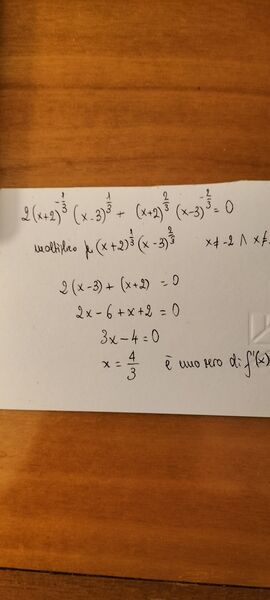 2(x+2)^{-1/3} (x-3)^{1/3} + (x+2)^{2/3} (x-3)^{-2/3} = 0
moltiplico p (x+2)^{1/3} (x-3)^{2/3} x≠-2 ∧ x≠
2(x-3) + (x+2) = 0
2x-6+x+2 = 0
3x-4=0
x = 4/3 è uno zero di f'(x)